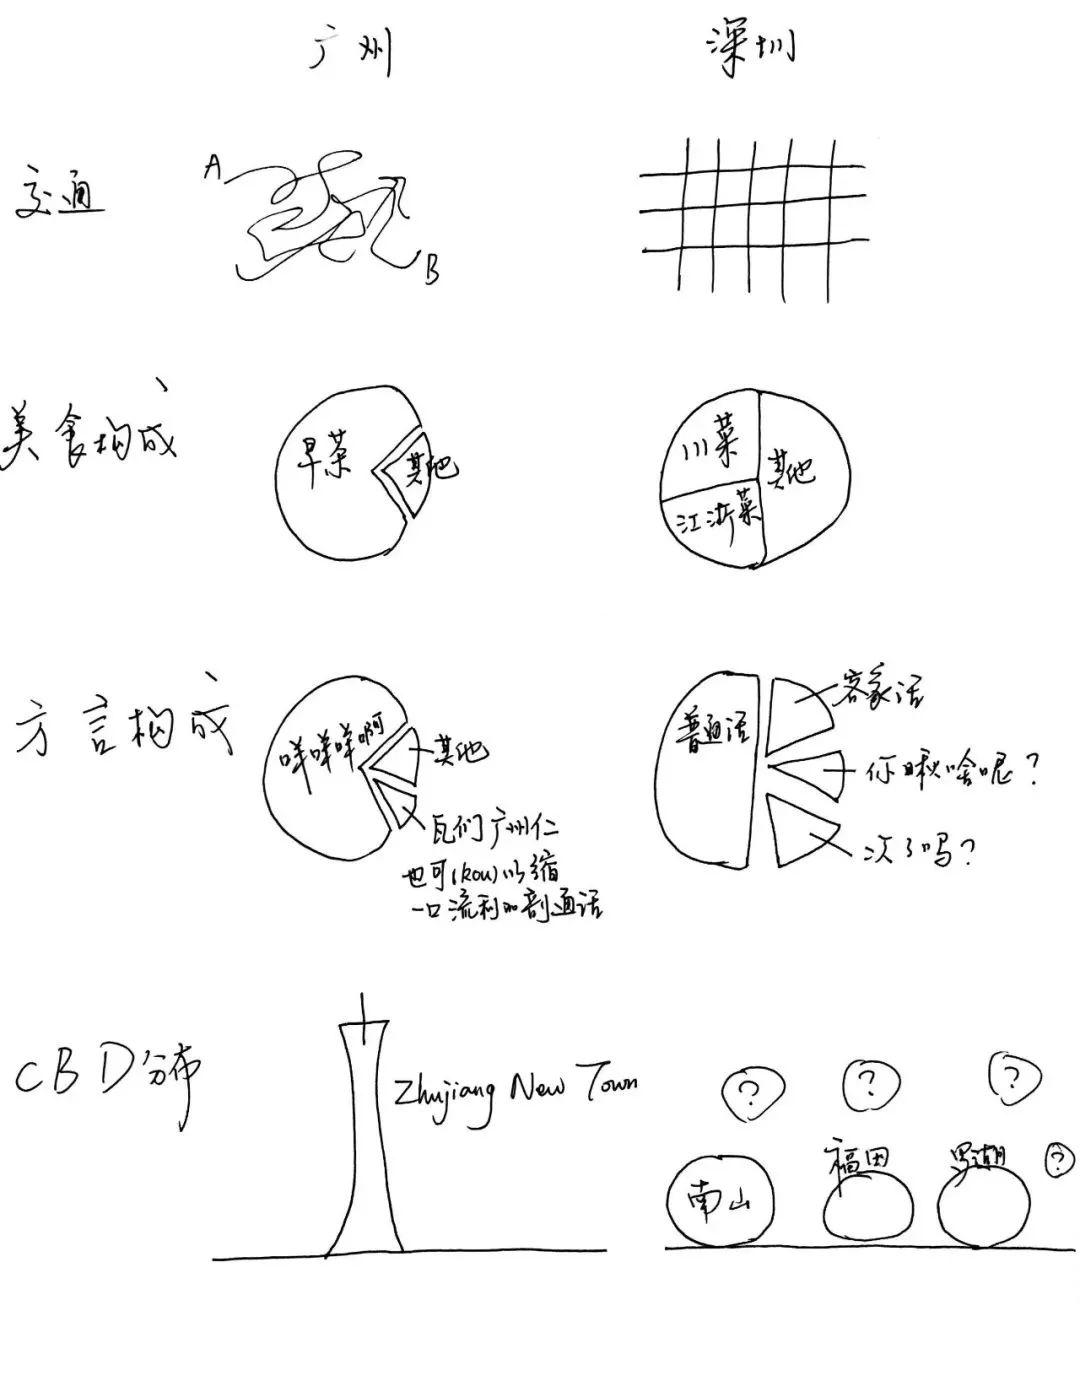 广州
深圳
交通
A
B
美食构成
早茶
其他
川菜
江浙菜
其他
方言构成
咩咩咩啊
其他
瓦们广州仁
也可(kou)以缩
一口流利的剖通话
普通话
客家话
你瞅啥呢？
次了吗？
CBD分布
Zhujiang New Town
?
?
?
?
南山
福田
罗湖